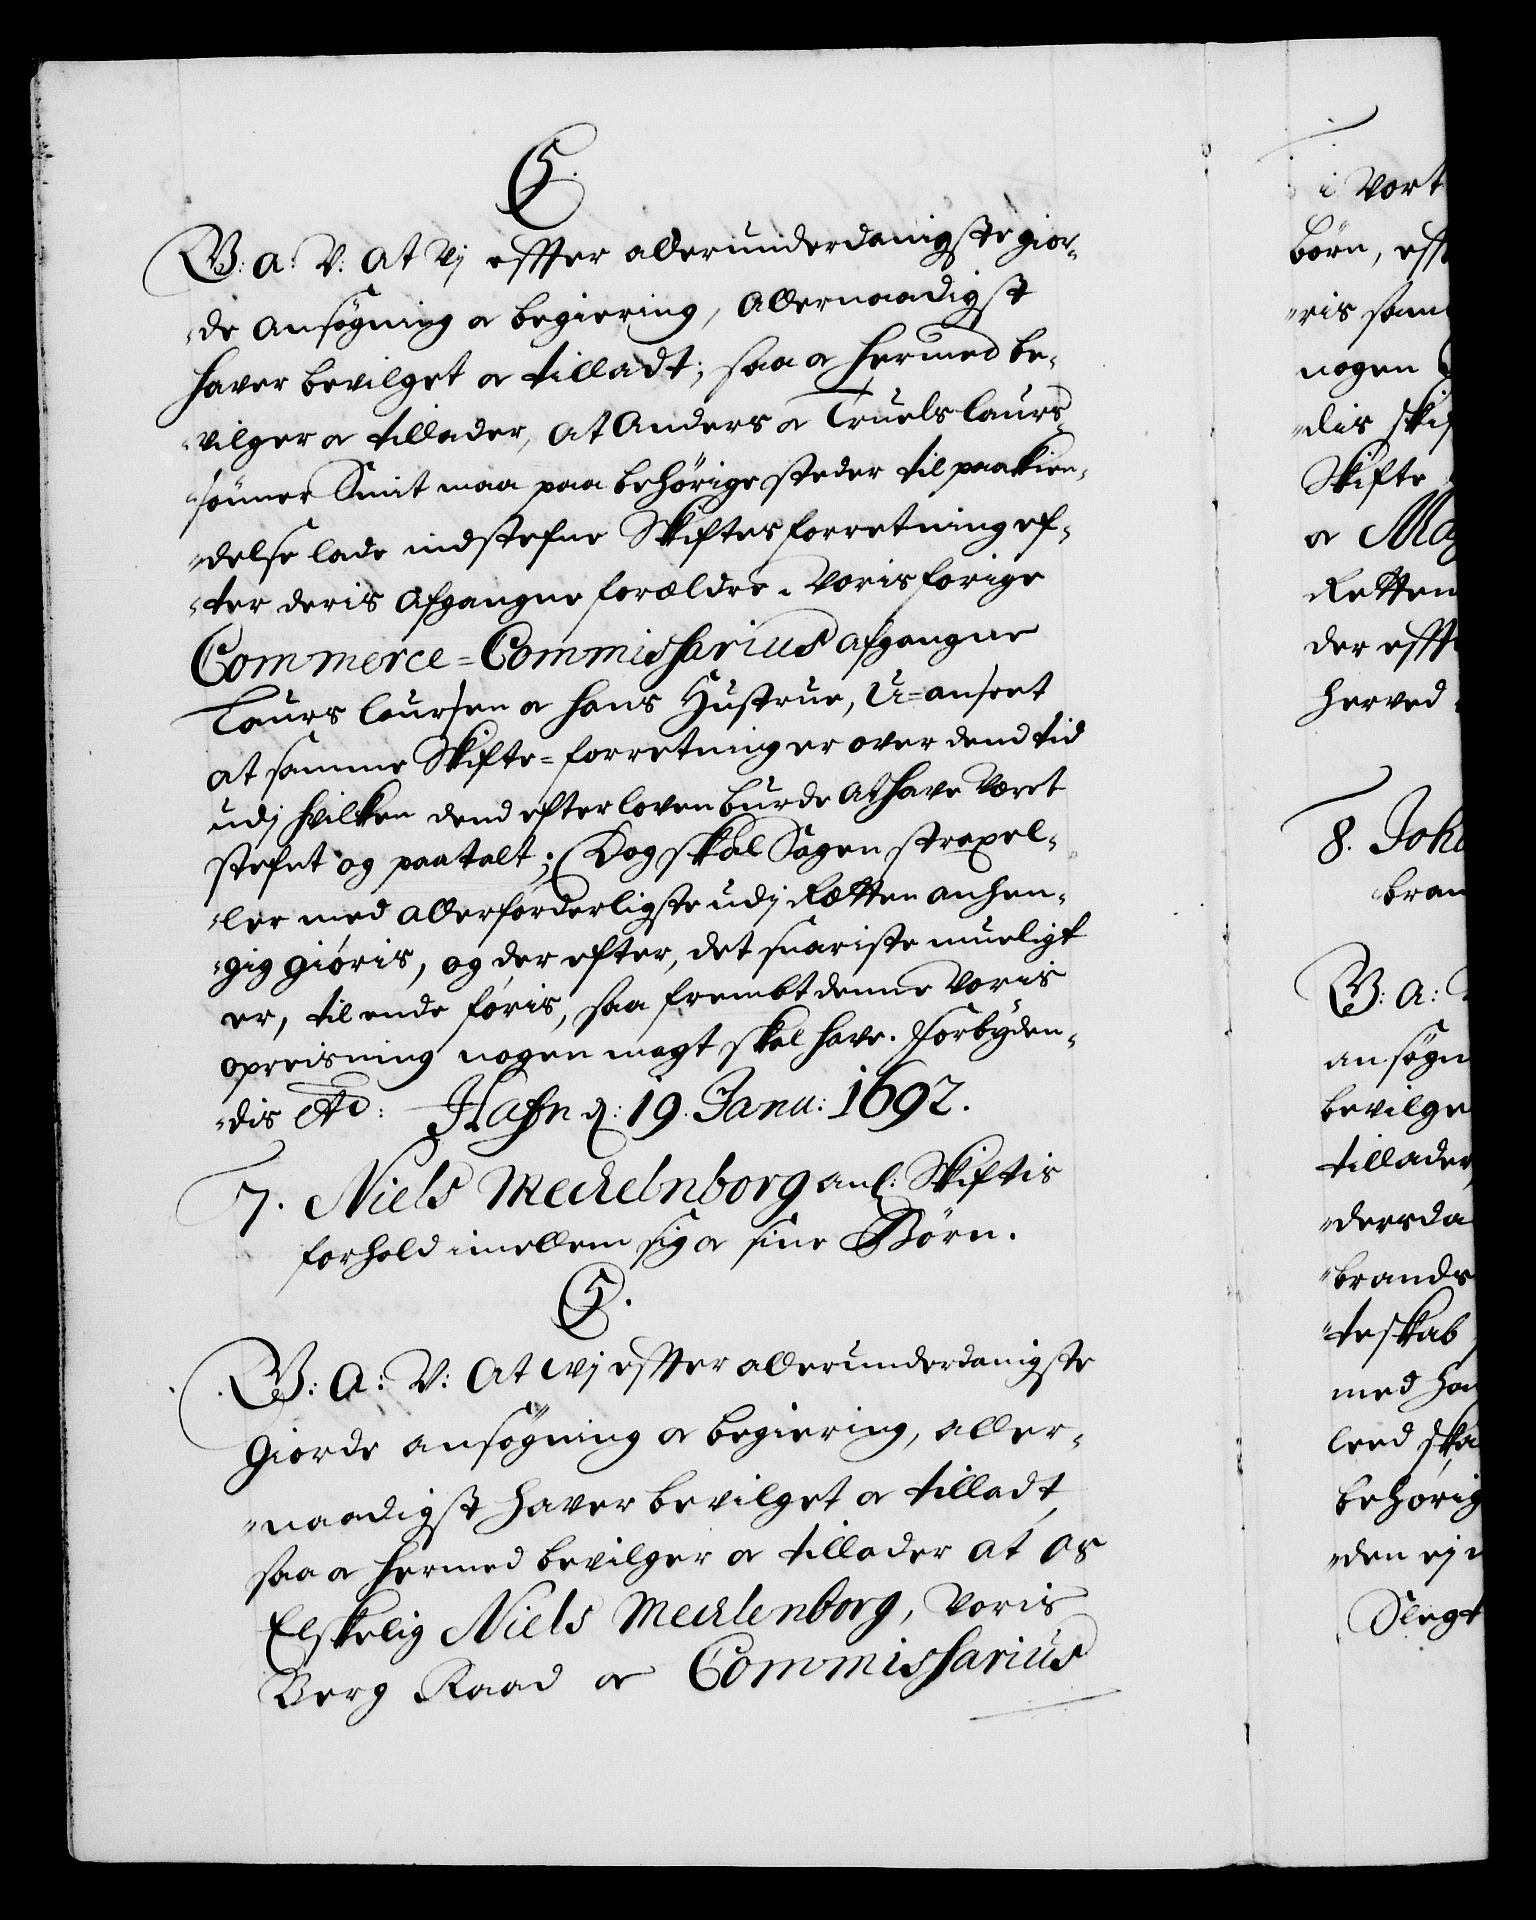 C5.
G: A: V: At Vj effter allerunderdanigste gior-
-de Ansøgning oc begiering, Allernaadigst
haver bevilget oc tilladt; saa oc hermed be-
-vilger oc tillader, At Anders oc Truels Laurs-
sønner Smit maa paa behørige steder til paakien-
-delse lade indstefne Skiftes forretning ef-
-ter deris Afgangne forældre. Voris forige
Commerce-Commissarius afgangne
Laurs Laursen oc hans Hustrue, U-anseet
at samme Skifte-forretning er over dend tid
udj hvilken dend efter loven burde At have været
stefnt og paatalt; Dog skal Sagen strax el-
-ler med Allerforderligste udj Rætten anhen-
-gig giøris, og der efter, det snariste mueligt
er, til ende føris, saa frembt denne Voris
opreisning nogen magt skal have. Forbyden-
-dis etc: Hafn d: 19. Janu: 1692.
7. Niels Meckelnborg anl: Skiftis
forhold imellem sig oc sine Børn.
C5.
G: A: V: At wj effter allerunderdanigste
giorde ansøgning oc begiering, aller-
-naadigst haver bevilget oc tilladt,
saa oc hermed bevilger oc tillader at os
Elskelig Niels Mecklenborg, Voris
Berg Raad oc Commissarius
i Vort
børn, eff
-ris sam
nogen
-dis skif
Skifte
oc Mag
Retten
der efft
herved
8. Joha
bran
G: A:
ansøgn
bevilge
tillader
-dersda
-brands
-teskab
med ha
leed ska
behørig
-den ej
Slegt